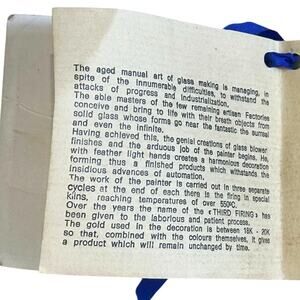 The aged manual art of glass making is managing, in
spite of the innumerable difficulties, to withstand the
attacks of progress and industrialization.
The able masters of the few remaining artisan Factories
conceive and bring to life with their breath objects from
solid glass whose forms go near the fantastic the surreal
and even the infinite.
Having achieved this, the genial creations of glass blower
finishes and the arduous job of the painter begins. He,
with feather light hands creates a harmonious decoration
forming thus a finished products which withstands the
insidious advances of automation.
The work of the painter is carried out in three separate
cycles at the end of each there is the firing in special
kilns, reaching temperatures of over 550ºC.
Over the years the name of the «THIRD FIRING» has
been given to the laborious and patient process.
The gold used in the decoration is between 18K - 20K
so that, combined with the colours themselves, it gives
a product which will remain unchanged by time.